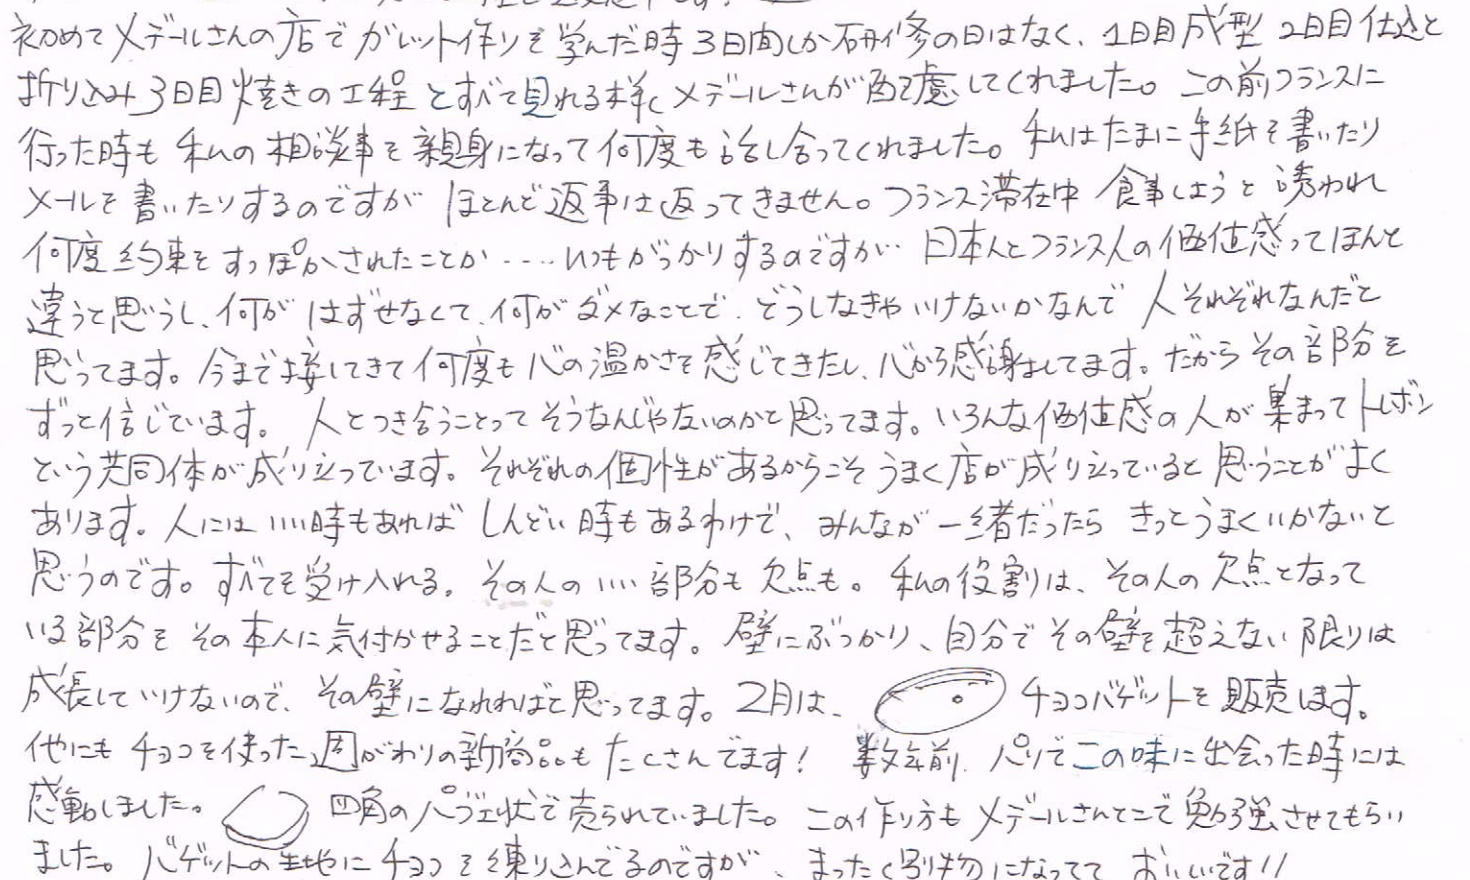 初めてメデールさんの店でガレット作りを学んだ時3日間しか研修の日はなく、1日目成型 2日目仕込と
折り込み3日目焼きの工程とすべて見れる様にメデールさんが配慮してくれました。この前フランスに
行った時も私の相談事を親身になって何度も話し合ってくれました。私はたまに手紙を書いたり
メールを書いたりするのですがほとんど返事は返ってきません。フランス滞在中 食事しようと誘われ
何度約束をすっぽかされたことか‥‥いつもがっかりするのですが‥日本人とフランス人の価値感ってほんと
違うと思うし、何がはずせなくて、何がダメなことで、どうしなきゃいけないかなんで 人それぞれなんだと
思ってます。今まで接してきて何度も心の温かさを感じてきたし、心から感謝してます。だからその部分を
ずっと信じています。人とつき合うことってそうなんじゃないのかと思ってます。いろんな価値感の人が集まってトレボン
という共同体が成り立っています。それぞれの個性があるからこそうまく店が成り立っていると思うことがよく
あります。人にはいい時もあればしんどい時もあるわけで、みんなが一緒だったらきっとうまくいかないと
思うのです。すべてを受け入れる。その人のいい部分も欠点も。私の役割は、その人の欠点となって
いる部分をその本人に気付かせることだと思ってます。壁にぶつかり、自分でその壁を超えない限りは
成長していけないので、その壁になれればと思ってます。2月は、チョコバゲットを販売します。
他にもチョコを使った週がわりの新商品もたくさんでます！ 数年前、パリでこの味に出会った時には
感動しました。四角のパヴェ状で売られていました。この作り方もメデールさんとこで勉強させてもらい
ました。バゲットの生地にチョコを練り込んでるのですが、まったく別物になってて おいしいです!!